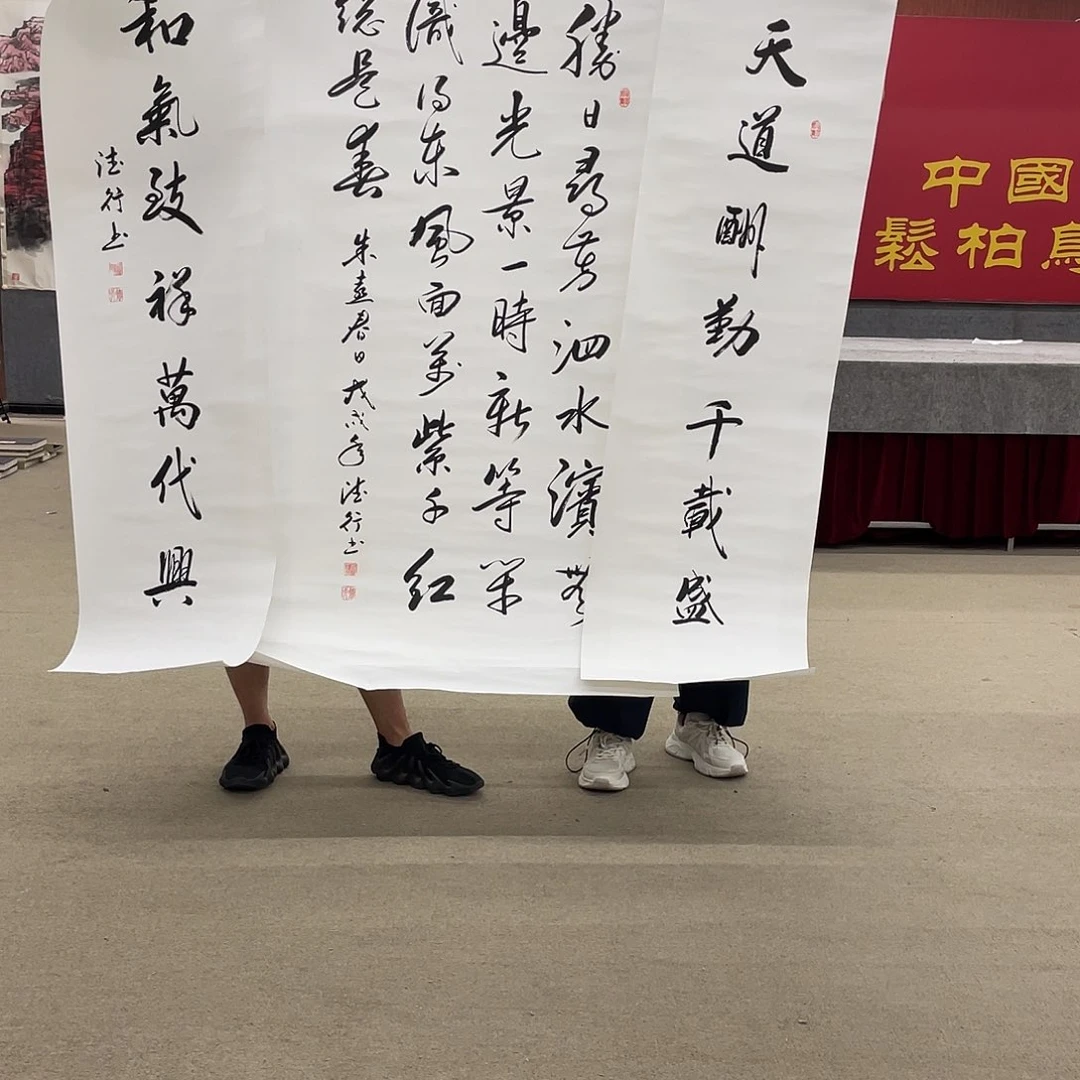 天道酬勤千載盛
勝日尋芳泗水濱無
邊光景一時新等閑
識得東風面萬紫千红
總是春
朱熹春日戊戌年德行书
和氣致祥萬代興
德行书
中國
鬆柏鳥